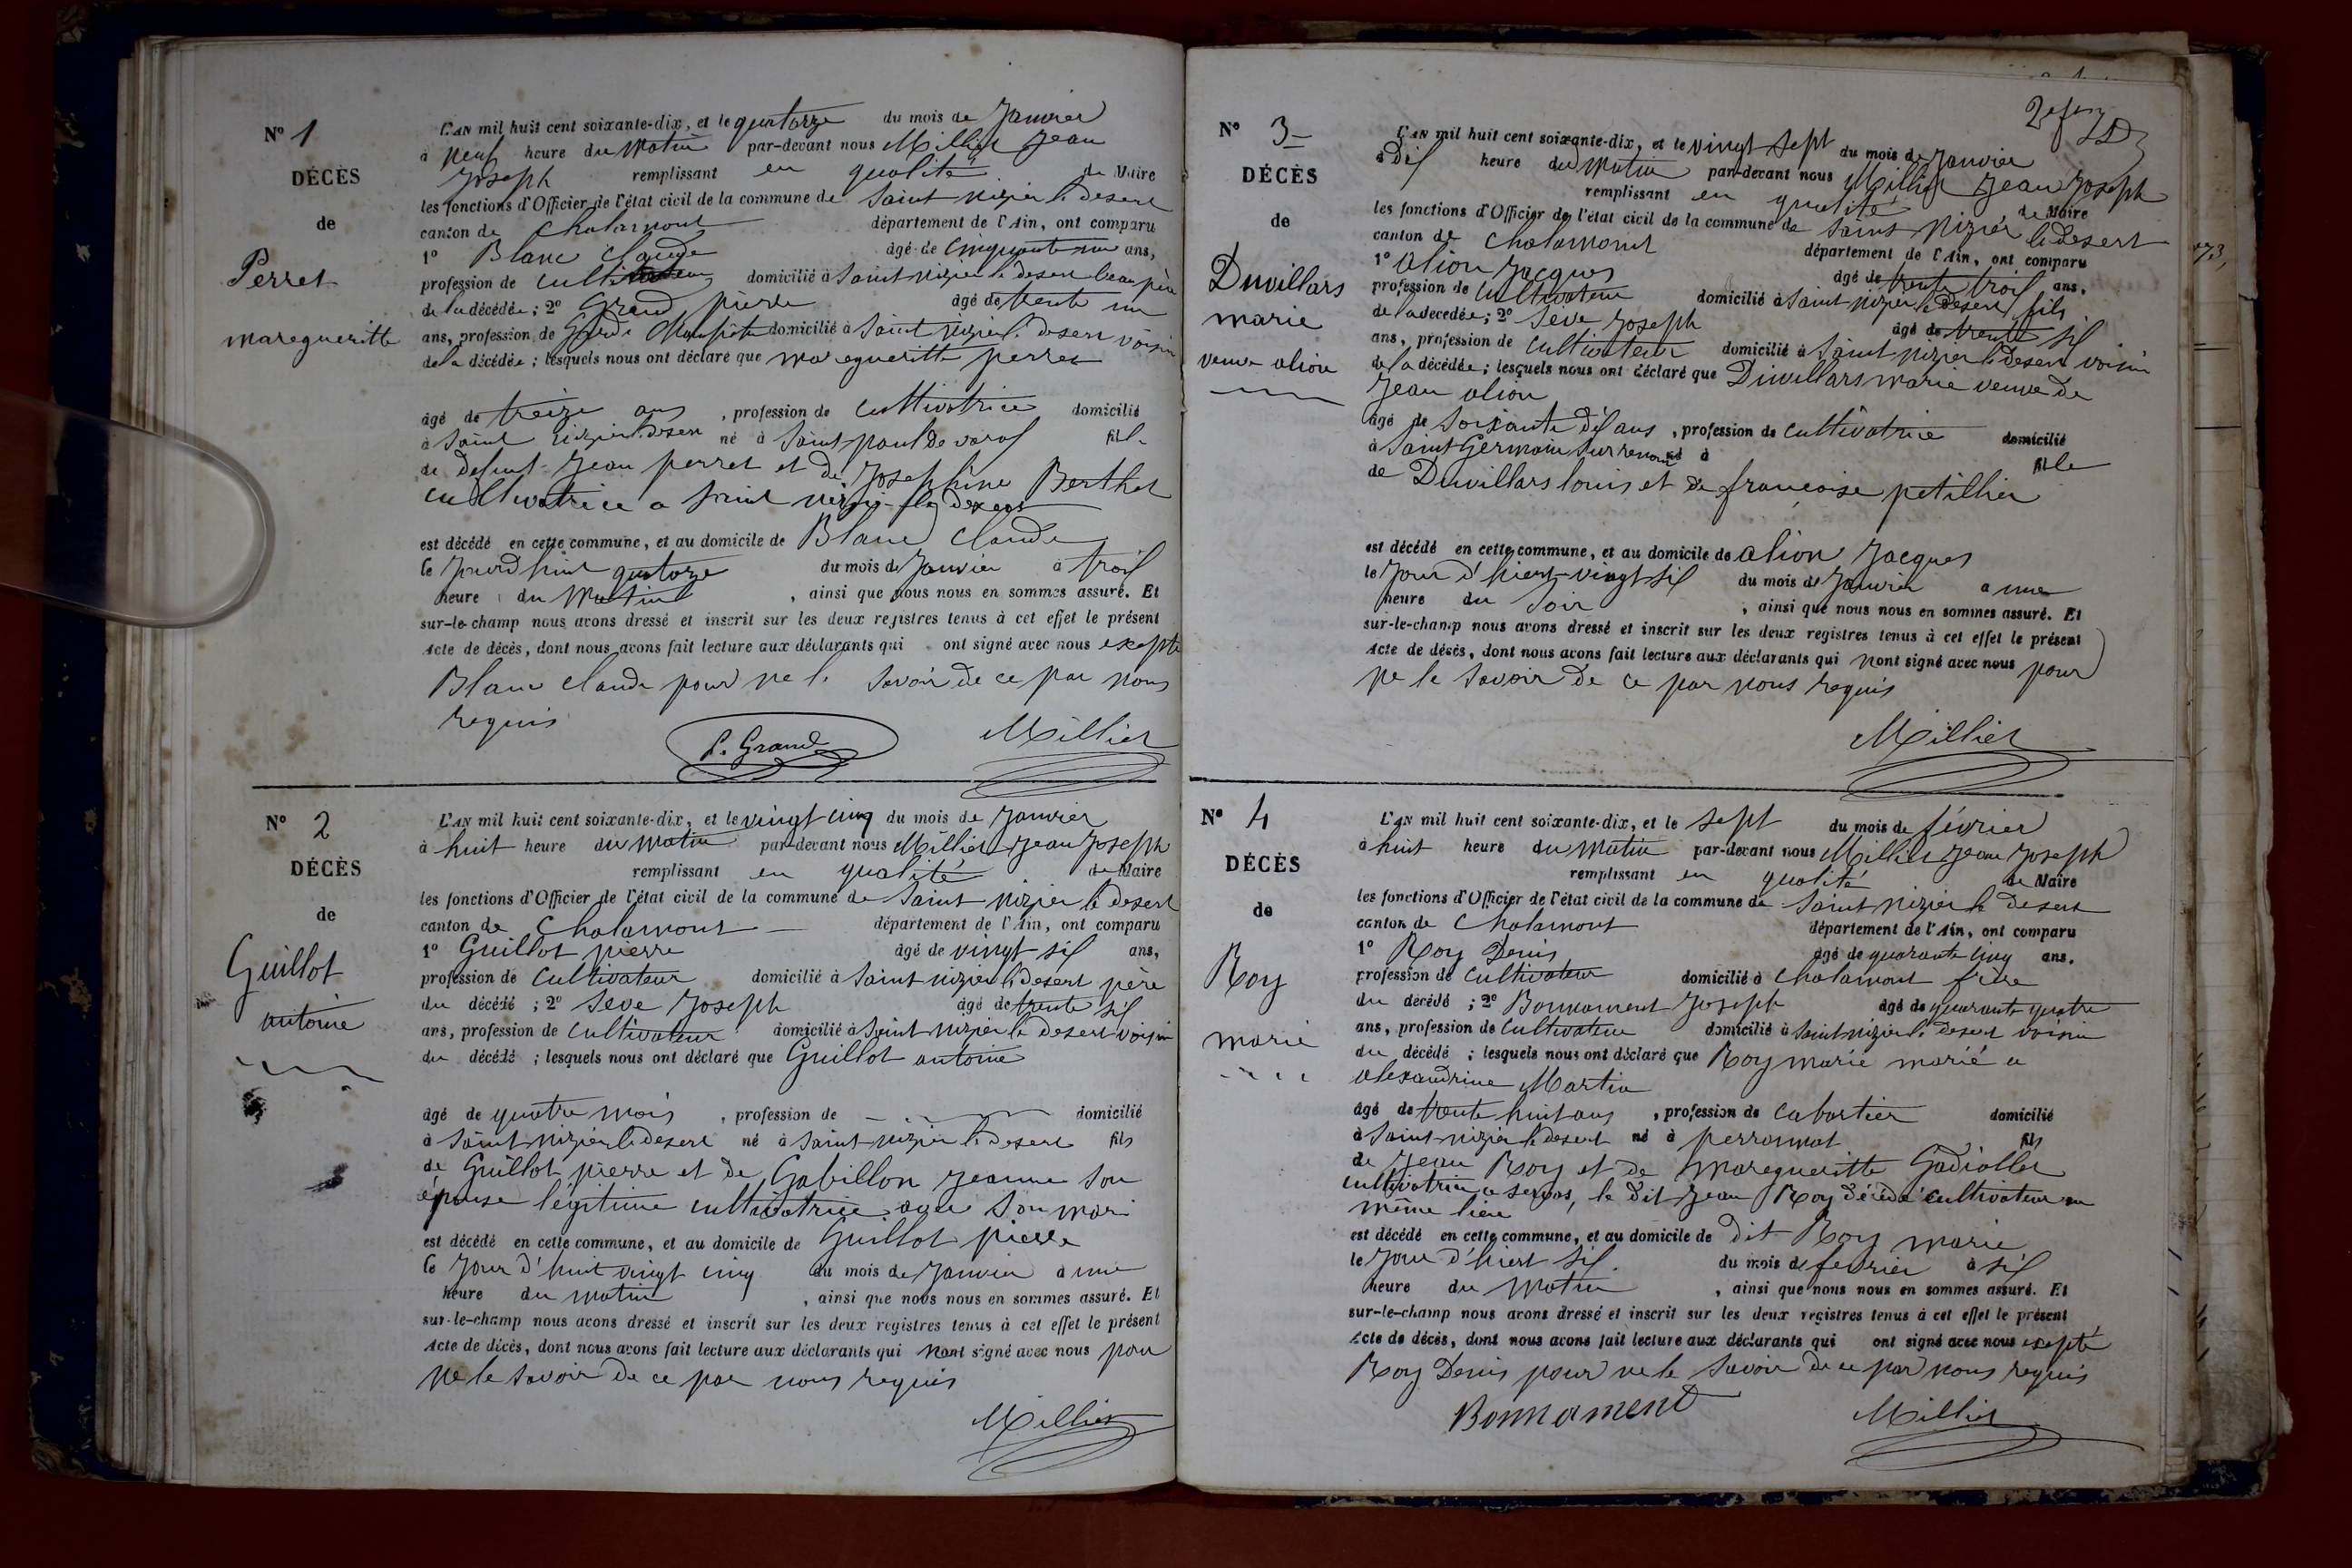 N° 1
DÉCÈS
de
Perret
maregueritte
L'AN mil huit cent soixante-dix, et le quatorze du mois de Janvier
à neuf heure du matin par-devant nous Millier Jean
Joseph remplissant en qualité de Maire
les fonctions d'Officier de l'état civil de la commune de Saint nizier le desert
canton de Chalamont département de l'Ain, ont comparu
1° Blanc Claude âgé de cinquante un ans,
profession de cultivateur domicilié à Saint nizier le desert beau père
de la décédée ; 2° Grand pierre âgé de trente un
ans, profession de Garde domicilié à Saint nizier le desert voisin
de la décédée ; lesquels nous ont déclaré que maregueritte perret
âgé de treize ans, profession de cultivatrice domicilié
à Saint nizier le desert né à Saint paul de varax fille
de defunt Jean perret et de Josephine Berthet
cultivatrice a Saint nizier le desert
est décédé en cette commune, et au domicile de Blanc Claude
le jourd'huit quatorze du mois de Janvier à trois
heure du matin, ainsi que nous nous en sommes assuré. Et
sur-le-champ nous avons dressé et inscrit sur les deux registres tenus à cet effet le présent
Acte de décès, dont nous avons fait lecture aux déclarants qui ont signé avec nous excepté
Blanc Claude pour ne le savoir de ce par nous
requis
P. Grand Millier
N° 2
DÉCÈS
de
Guillot
antoine
L'AN mil huit cent soixante-dix, et le vingt cinq du mois de Janvier
à huit heure du matin par-devant nous Millier Jean Joseph
remplissant en qualité de Maire
les fonctions d'Officier de l'état civil de la commune de Saint nizier le desert
canton de Chalamont département de l'Ain, ont comparu
1° Guillot pierre âgé de vingt six ans,
profession de cultivateur domicilié à Saint nizier le desert père
du décédé ; 2° Seve Joseph âgé de trente six
ans, profession de cultivateur domicilié à Saint nizier le desert voisin
du décédé ; lesquels nous ont déclaré que Guillot antoine
âgé de quatre mois, profession de domicilié
à Saint nizier le desert né à Saint nizier le desert fils
de Guillot pierre et de Gabillon Jeanne son
épouse légitime cultivatrice avec son mari
est décédé en cette commune, et au domicile de Guillot pierre
le Jour d'huit vingt cinq du mois de Janvier à une
heure du matin, ainsi que nous nous en sommes assuré. Et
sur-le-champ nous avons dressé et inscrit sur les deux registres tenus à cet effet le présent
Acte de décès, dont nous avons fait lecture aux déclarants qui nont signé avec nous pour
ne le savoir de ce par nous requis
Millier
N° 3
DÉCÈS
de
Duvillars
marie
veuve alion
L'AN mil huit cent soixante-dix, et le vingt sept du mois de Janvier
à dix heure du matin par-devant nous Millier Jean Joseph
remplissant en qualité de Maire
les fonctions d'Officier de l'état civil de la commune de Saint Nizier le desert
canton de Chalamont département de l'Ain, ont comparu
1° alion Jacques âgé de trente trois ans,
profession de cultivateur domicilié à Saint nizier le desert fils
de la decedée ; 2° Seve Joseph âgé de trente six
ans, profession de cultivateur domicilié à Saint nizier le desert voisin
de la décédée ; lesquels nous ont déclaré que Duvillars marie veuve de
Jean alion
âgé de soixante dix ans, profession de cultivatrice domicilié
à Saint Germain sur renon né à fille
de Duvillars louis et de françoise petillier
est décédé en cette commune, et au domicile de alion Jacques
le Jour d'hiert vingt six du mois de Janvier à une
heure du soir, ainsi que nous nous en sommes assuré. Et
sur-le-champ nous avons dressé et inscrit sur les deux registres tenus à cet effet le présent
Acte de décès, dont nous avons fait lecture aux déclarants qui nont signé avec nous pour
ne le savoir de ce par nous requis
Millier
N° 4
DÉCÈS
de
Roy
marie
L'AN mil huit cent soixante-dix, et le sept du mois de février
à huit heure du matin par-devant nous Millier Jean Joseph
remplissant en qualité de Maire
les fonctions d'Officier de l'état civil de la commune de Saint nizier le desert
canton de Chalamont département de l'Ain, ont comparu
1° Roy Denis âgé de quarante cinq ans,
profession de cultivateur domicilié à Chalamont frère
du décédé ; 2° Bonnament Joseph âgé de quarante quatre
ans, profession de cultivateur domicilié à Saint nizier le desert voisin
du décédé ; lesquels nous ont déclaré que Roy marie marié a
alexandrine Martin
âgé de trente huit ans, profession de cabartier domicilié
à Saint nizier le desert né à perronnat fils
de Jean Roy et de maregueritte Gadiollet
cultivatrice a servas, le dit Jean Roy décédé cultivateur au
même lieu
est décédé en cette commune, et au domicile de dit Roy marie
le Jour d'hiert six du mois de fevrier à six
heure du matin, ainsi que nous nous en sommes assuré. Et
sur-le-champ nous avons dressé et inscrit sur les deux registres tenus à cet effet le présent
Acte de décès, dont nous avons fait lecture aux déclarants qui ont signé avec nous excepté
Roy Denis pour ne le savoir de ce par nous requis
Bonnament Millier